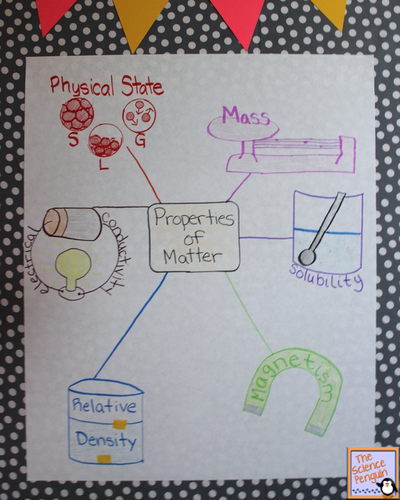 Physical State
S
L
G
Mass
Properties
of
Matter
electrical
conductivity
Solubility
Magnetism
Relative
Density
The
Science
Penguin